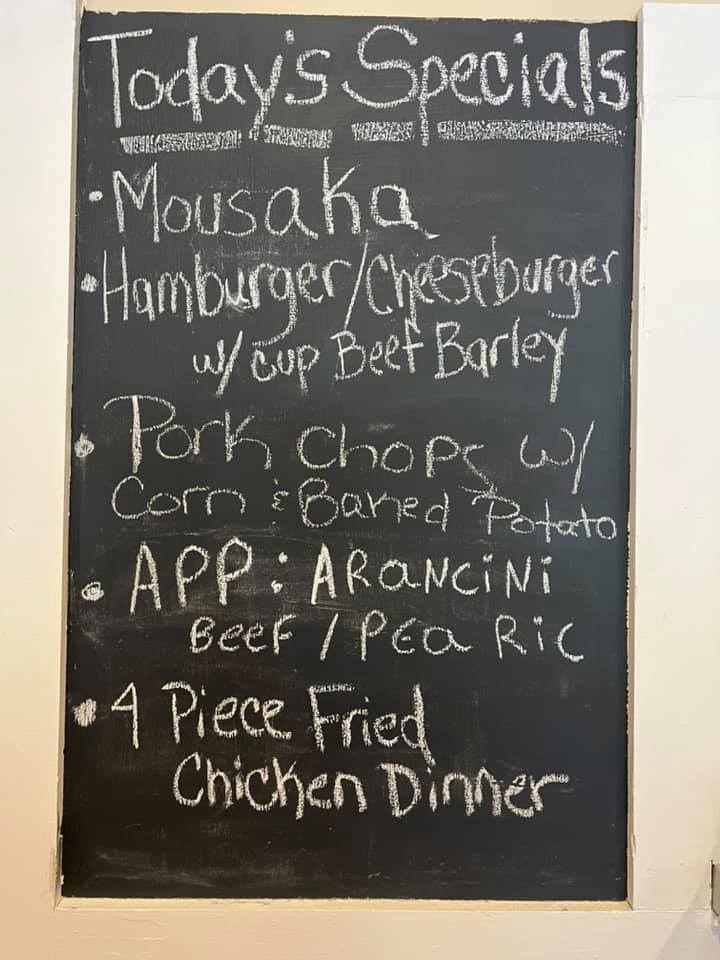 Today's Specials
• Mousaka
• Hamburger/Cheeseburger
w/ cup Beef Barley
• Pork Chops w/
Corn & Baked Potato
• APP: ARANCiNi
BEEF / PEA RiC
• 4 Piece Fried
Chicken Dinner